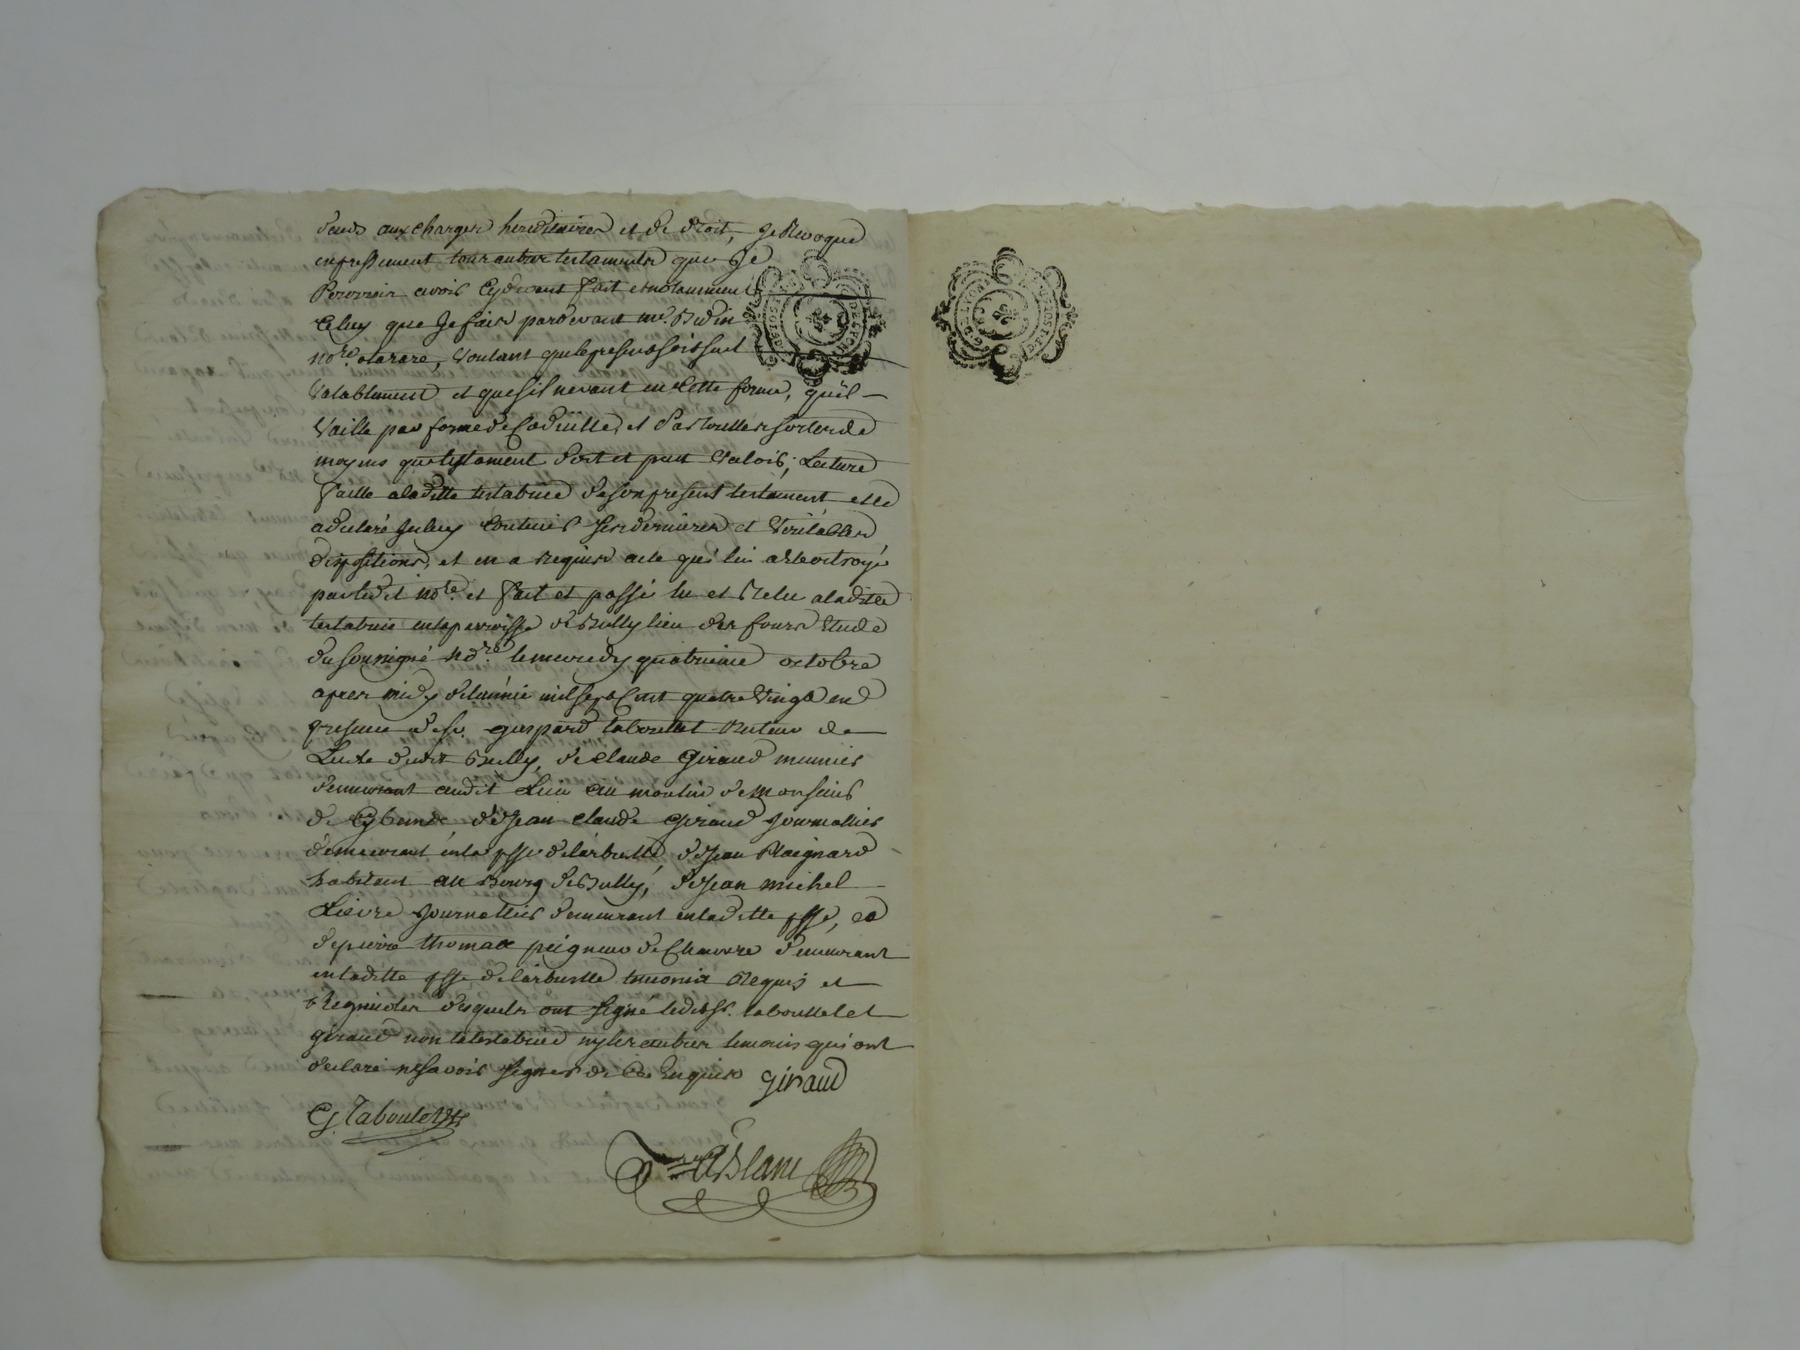 dends aux charges hereditaires et de droit, Je Revoque
expressement tout autres testaments que Je
Pourrois avoir Cydevant fait et notamment
Celuy que Je fais pardevant me. Budin
nore. a tarare, Voulant que le present soit seul
Valablement et que s'il ne vaut en Cette forme, qu'il
Vaille par forme de Codicille, et Par touttes sortes de
moyens que testament Doit et peut Valoir; Lecture
faitte a laditte testatrice de son present testament, elle
a declaré Iceluy Contenir ses dernieres et Veritables
dispositions, et en a Requis acte qui lui a été octroyé
par ledit note. et fait et passé lu et Relu a laditte
testatrice en la parroisse de Bully lieu des fours Etude
du soussigné nore. le mercredy quatrieme octobre
apres midy de l'année mil sept Cent quatre Vingt en
presence de sr. gaspard taboullet Recteur de
Lecole dudit Bully, de Claude Giraud meunier
demeurant audit Lieu au moulin de Monsieur
de de Jean Claude Giraud Journallier
demeurant en la psse de larbresle de Jean Plaignard
habitant au Bourg de Bully, de Jean michel
Lievre Journallier demeurant en laditte psse, et
de pierre thomas peigneur de Chanvre demeurant
en laditte psse de larbresle temoins Requis et
desquels ont signé lesdits sr. taboullet et
giraud non la testatrice ny les autres temoins qui ont
declaré ne savoir signer de Ce Enquis Giraud
G Taboulet
Blanc